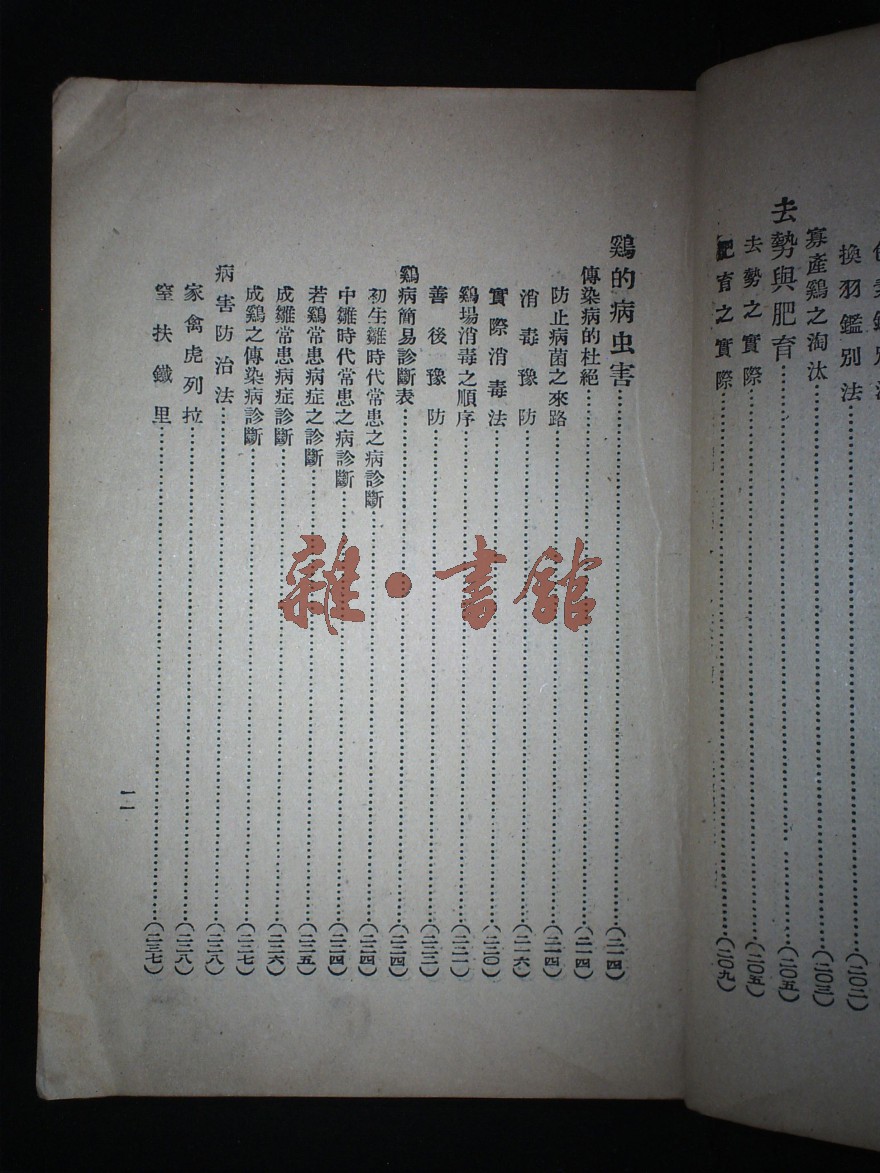 換羽鑑別法……(二〇二)
寡產鷄之淘汰……(二〇三)
去勢與肥育……(二〇五)
去勢之實際……(二〇五)
肥育之實際……(二〇九)
鷄的病虫害……(二一四)
傳染病的杜絕……(二一四)
防止病菌之來路……(二一四)
消毒豫防……(二一六)
實際消毒法……(二二〇)
鷄場消毒之順序……(二二一)
善後豫防……(二二三)
鷄病簡易診斷表……(二二四)
初生雛時代常患之病診斷……(二二四)
中雛時代常患之病診斷……(二二四)
若鷄常患病症之診斷……(二二五)
成雛常患病症診斷……(二二六)
成鷄之傳染病診斷……(二二七)
病害防治法……(二二八)
家禽虎列拉……(二二八)
窒扶鐵里……(二三七)
一一
雜·書館